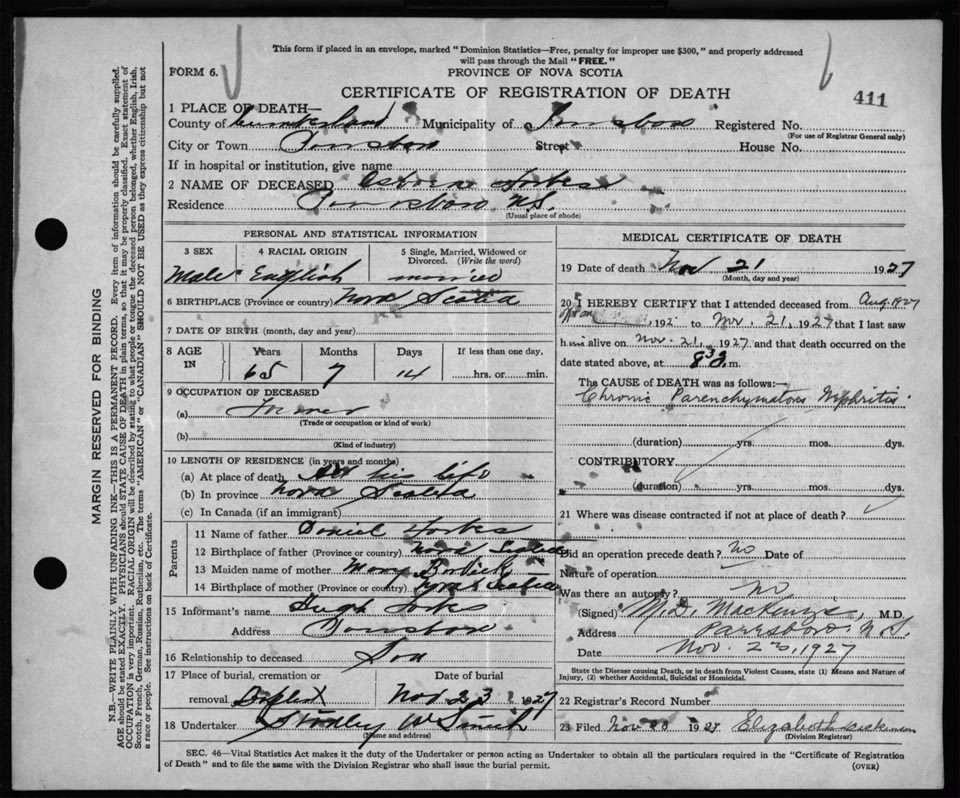 This form if placed in an envelope, marked "Dominion Statistics—Free, penalty for improper use $300," and properly addressed
will pass through the Mail "FREE."
FORM 6.
PROVINCE OF NOVA SCOTIA
CERTIFICATE OF REGISTRATION OF DEATH
411
1 PLACE OF DEATH—
County of Cumberland Municipality of Parrsboro Registered No.
(For use of Registrar General only)
City or Town Parrsboro Street House No.
If in hospital or institution, give name
2 NAME OF DECEASED
Residence Parrsboro N.S.
(Usual place of abode)
PERSONAL AND STATISTICAL INFORMATION
3 SEX 4 RACIAL ORIGIN 5 Single, Married, Widowed or Divorced. (Write the word)
Male English married
6 BIRTHPLACE (Province or country) Nova Scotia
7 DATE OF BIRTH (month, day and year)
8 AGE IN Years Months Days If less than one day,
65 7 14 hrs. or min.
9 OCCUPATION OF DECEASED
(a)
(Trade or occupation or kind of work)
(b)
(Kind of industry)
10 LENGTH OF RESIDENCE (in years and months)
(a) At place of death All his life
(b) In province Nova Scotia
(c) In Canada (if an immigrant)
Parents
11 Name of father Daniel
12 Birthplace of father (Province or country) Nova Scotia
13 Maiden name of mother Mary
14 Birthplace of mother (Province or country) Nova Scotia
15 Informant's name Hugh
Address Parrsboro
16 Relationship to deceased Son
17 Place of burial, cremation or removal Date of burial
Nov 23 1927
18 Undertaker Stanley W Smith
(Name and address)
MEDICAL CERTIFICATE OF DEATH
19 Date of death Nov 21 1927
(Month, day and year)
20 I HEREBY CERTIFY that I attended deceased from Aug. 1927
, 192 to Nov. 21, 1927 that I last saw
him alive on Nov. 21, 1927 and that death occurred on the
date stated above, at 8 30 m.
The CAUSE OF DEATH was as follows:—
Chronic Parenchymatous Nephritis
(duration) yrs. mos. dys.
CONTRIBUTORY
(duration) yrs. mos. dys.
21 Where was disease contracted if not at place of death?
Did an operation precede death? no Date of
Nature of operation
Was there an autopsy? no
(Signed) M.D. MacKenzie, M.D.
Address Parrsboro N.S.
Date Nov. 23, 1927
State the Disease causing Death, or in death from Violent Causes, state (1) Means and Nature of
Injury, (2) whether Accidental, Suicidal or Homicidal.
22 Registrar's Record Number
23 Filed Nov 23 1927 Elizabeth
(Division Registrar)
SEC. 46—Vital Statistics Act makes it the duty of the Undertaker or person acting as Undertaker to obtain all the particulars required in the "Certificate of Registration
of Death" and to file the same with the Division Registrar who shall issue the burial permit.
(OVER)
MARGIN RESERVED FOR BINDING
N.B.—WRITE PLAINLY, WITH UNFADING INK—THIS IS A PERMANENT RECORD. Every item of information should be carefully supplied.
AGE should be stated EXACTLY. PHYSICIANS should STATE CAUSE OF DEATH in plain terms, so that it may be properly classified. Exact statement of
OCCUPATION is very important. RACIAL ORIGIN will be described by stating to what people or tongue the deceased person belonged, whether English, Irish,
Scotch, French, German, Russian, Ruthenian, etc. The terms "AMERICAN" or "CANADIAN" SHOULD NOT BE USED as they express citizenship but not
a race or people. See instructions on back of Certificate.